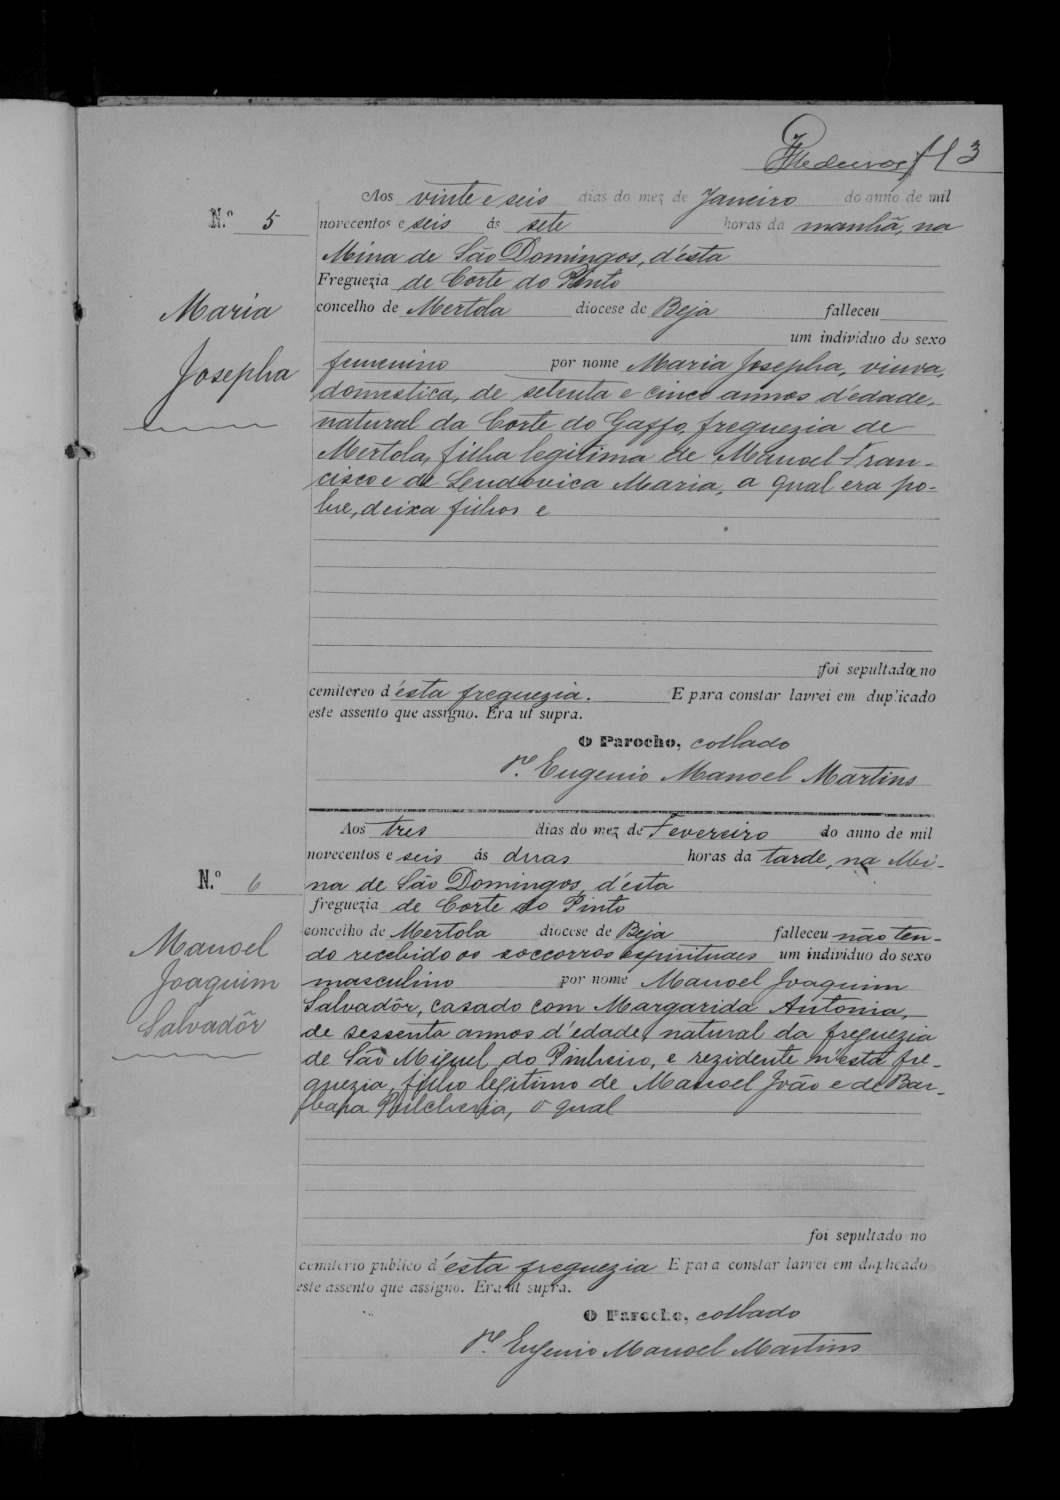 Medeiros fl 3
Aos vinte e seis dias do mez de Janeiro do anno de mil
N.º 5 novecentos e seis ás sete horas da manhã, na
Mina de São Domingos, d'ésta
Freguezia de Corte do Pinto
Maria
concelho de Mertola diocese de Beja falleceu
um individuo do sexo
Josepha
femenino por nome Maria Josepha, viuva,
domestica, de setenta e cinco annos d'edade,
natural da Corte do Gaffo, freguezia de
Mertola, filha legitima de Manoel Fran-
cisco e de Leudovica Maria, a qual era po-
bre, deixa filhos e
foi sepultada no
cemitereo d'ésta freguezia. E para constar lavrei em duplicado
este assento que assigno. Era ut supra.
O Parocho, collado
P.e Eugenio Manoel Martins
Aos tres dias do mez de Fevereiro do anno de mil
novecentos e seis ás duas horas da tarde, na Mi-
N.º 6 na de São Domingos, d'ésta
freguezia de Corte do Pinto
concelho de Mertola diocese de Beja falleceu não ten-
Manoel
do recebido os soccorros espirituaes um individuo do sexo
Joaquim
masculino por nome Manoel Joaquim
Salvadôr
Salvadôr, casado com Margarida Antonia,
de sessenta annos d'edade, natural da freguezia
de São Miguel do Pinheiro, e rezidente n'esta fre-
guezia, filho legitimo de Manoel João e de Bar-
bara Pulcheria, o qual
foi sepultado no
cemiterio publico d'ésta freguezia E para constar lavrei em duplicado
este assento que assigno. Era ut supra.
O Parocho, collado
P.e Eugenio Manoel Martins